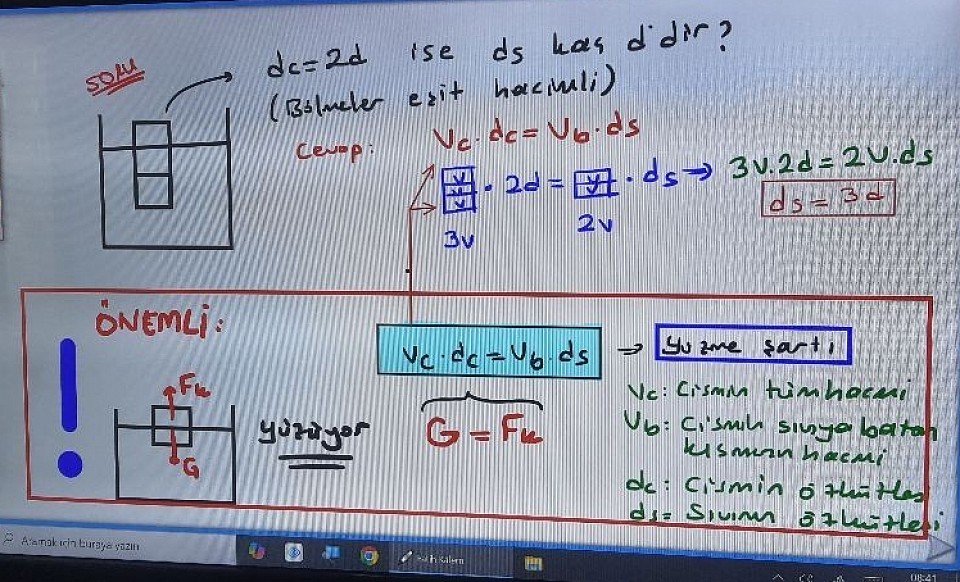 SORU
dc=2d ise ds kaç d'dir?
(Bölmeler eşit hacimli)
Cevap: Vc.dc=Vb.ds
V V V . 2d = V . ds → 3V.2d=2V.ds
3V 2V
ds=3d
ÖNEMLİ:
Vc.dc=Vb.ds → Yüzme şartı
Fk
G
yüzüyor
G=Fk
Vc: Cismin tüm hacmi
Vb: Cismin sıvıya batan
kısmının hacmi
dc: Cismin özkütles
ds= Sıvının özkütlesi
Aramak için buraya yazın
08:41